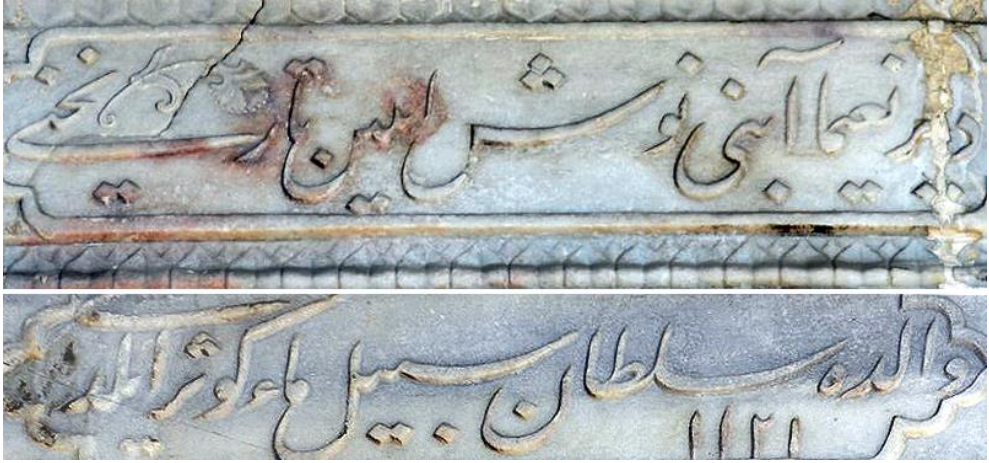 دير نعيما آبنى نوش ايلين تاريخنى
والده سلطان سبيل ماء كوثر ايلدى
١١٢١